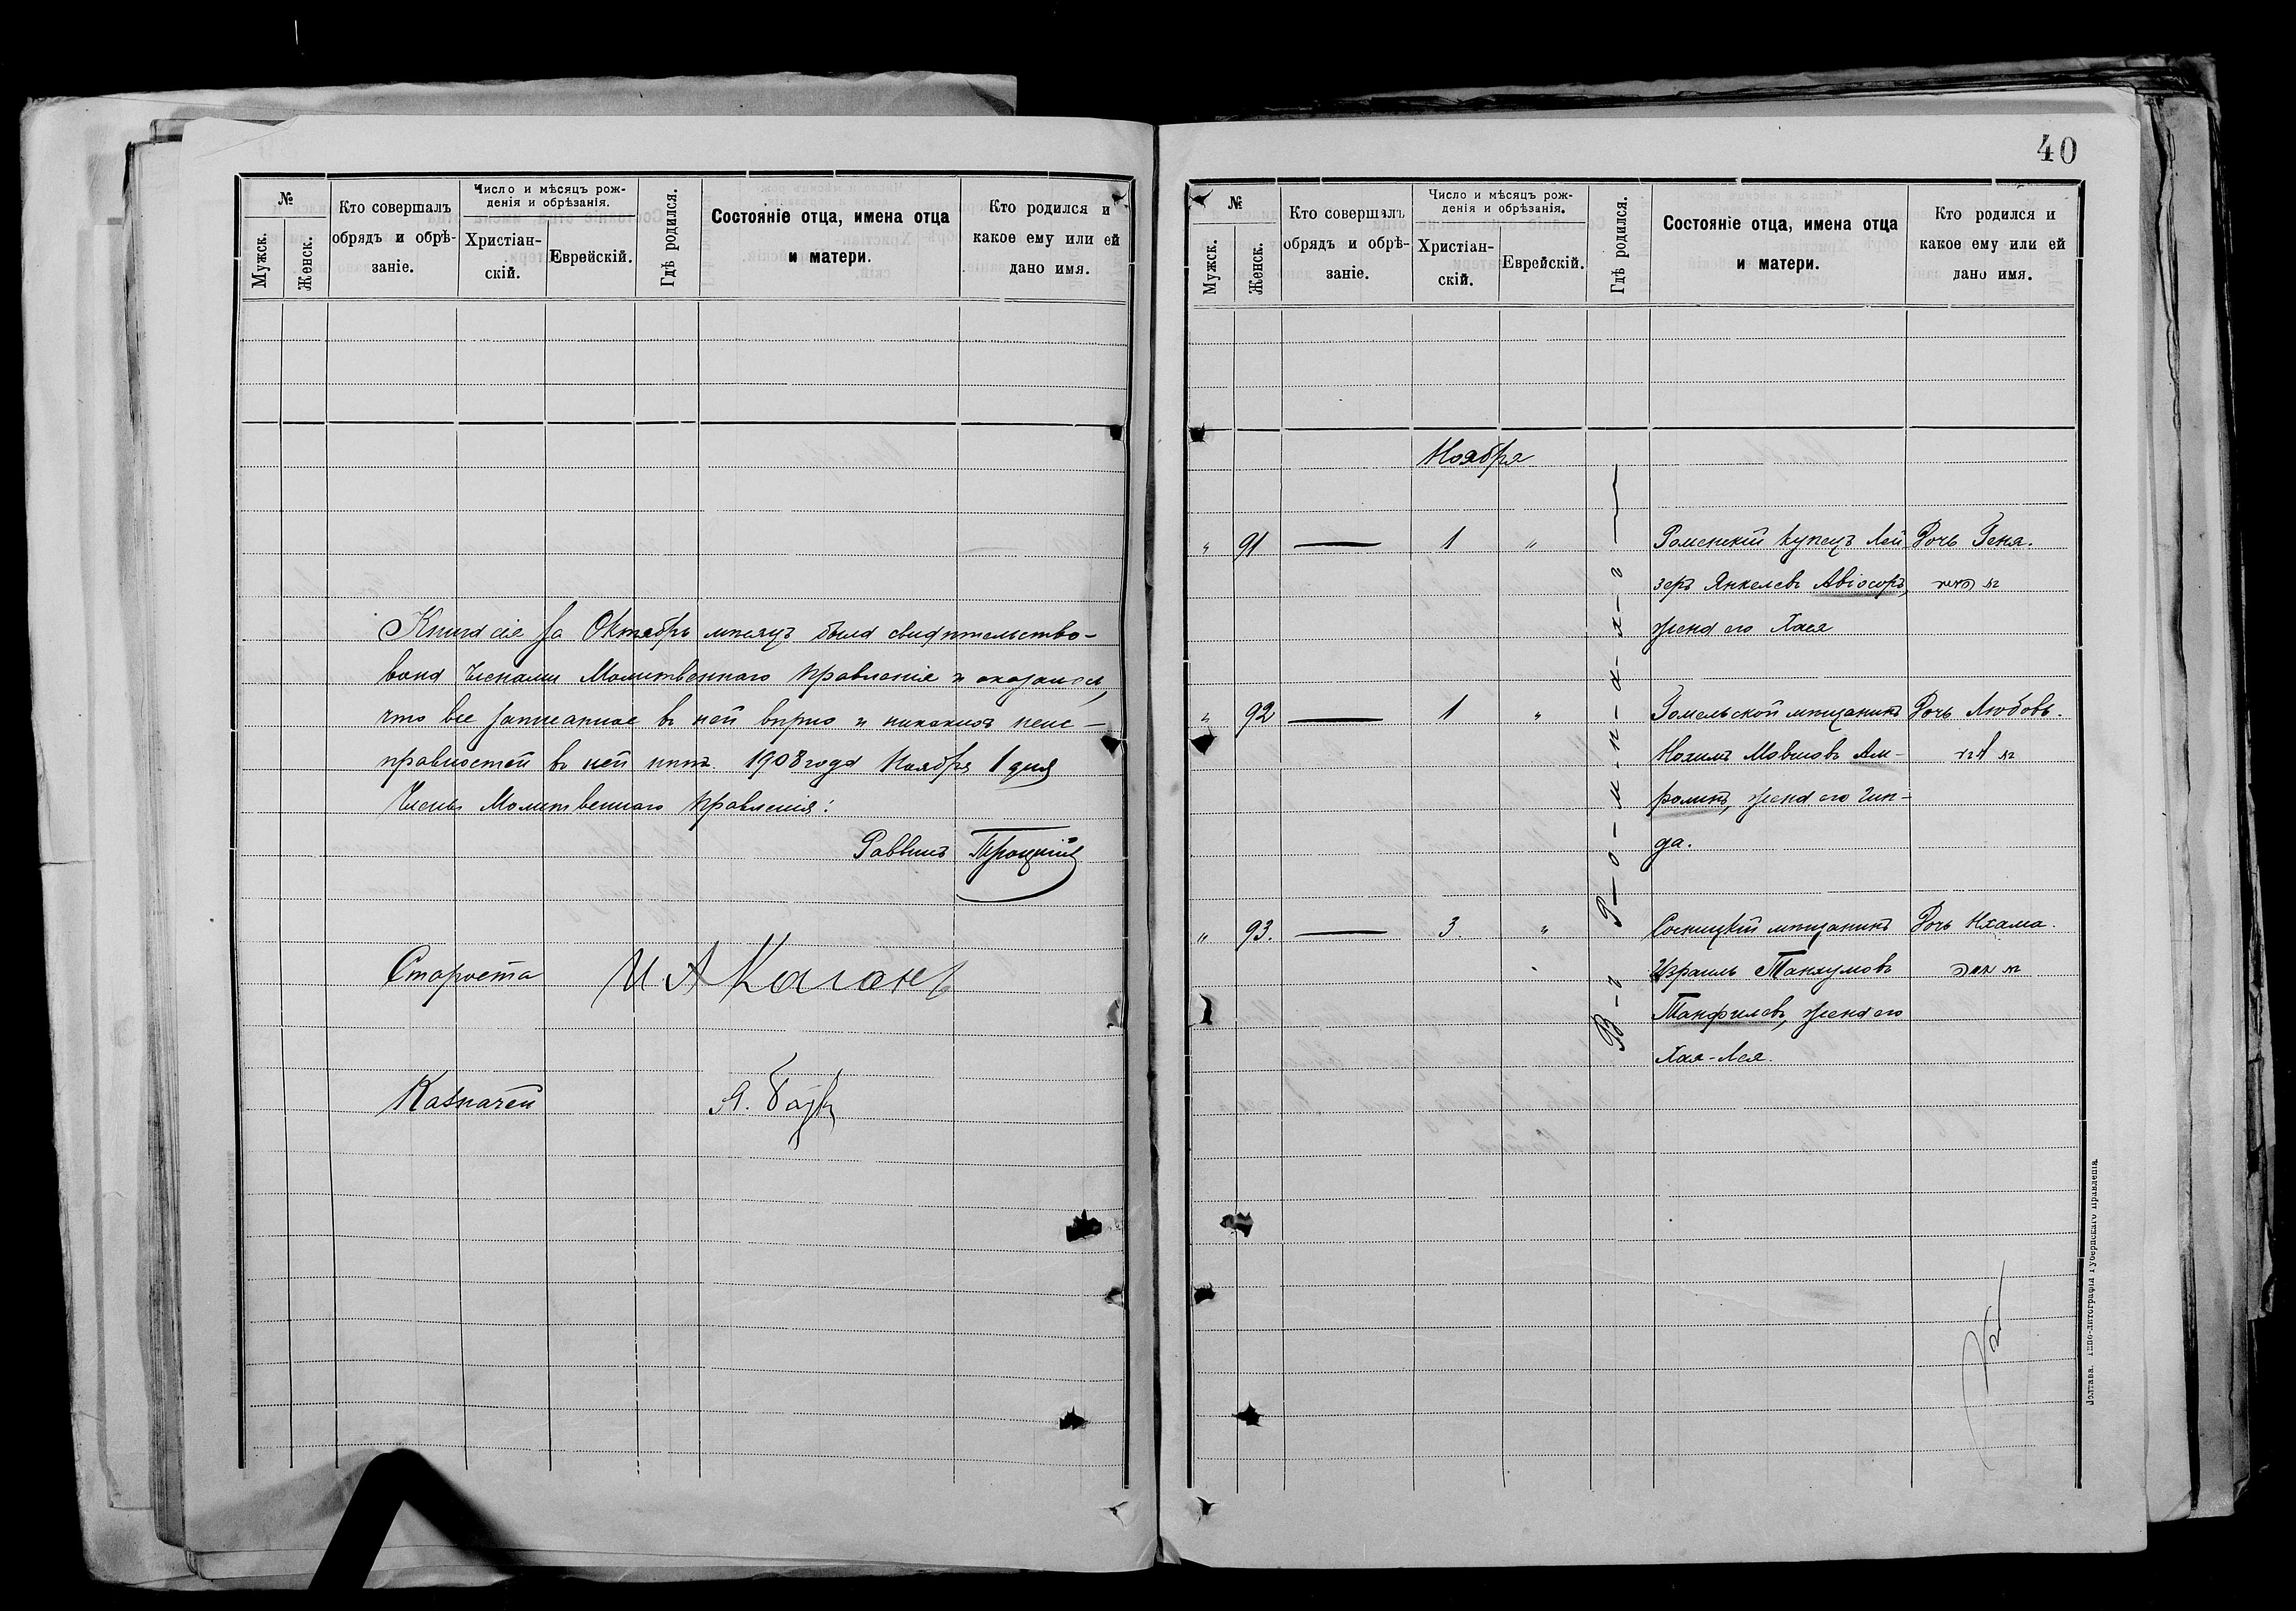 №
Мужск.
Женск.
Кто совершалъ
обрядъ и обрѣ-
заніе.
Число и мѣсяцъ рож-
денія и обрѣзанія.
Христіан-
скій.
Еврейскій.
Гдѣ родился.
Состояніе отца, имена отца
и матери.
Кто родился и
какое ему или ей
дано имя.
Книга сія за Октябрь мѣсяцъ была свидѣтельство-
вана Членами Молитвеннаго правленія и оказалось,
что все записанное въ ней вѣрно и никакихъ неис-
правностей въ ней нѣтъ. 1908 года Ноября 1 дня
Члены Молитвеннаго правленія:
Раввинъ Троцкій
Староста И А Каганъ
Казначей Я.
40
№
Мужск.
Женск.
Кто совершалъ
обрядъ и обрѣ-
заніе.
Число и мѣсяцъ рож-
денія и обрѣзанія.
Христіан-
скій.
Еврейскій.
Гдѣ родился.
Состояніе отца, имена отца
и матери.
Кто родился и
какое ему или ей
дано имя.
Ноября
В-ъ Р-о-м-н-а-х-ъ
„ 91 — 1 „ Роменскій купецъ Лей Дочь Геня.
зеръ Янкелевъ Авіосоръ,
жена его Хася
„ 92 — 1 „ Гомельской мѣщанинъ Дочь Любовь.
Нохимъ Мовшовъ Ам-
ролинъ, жена его Гин-
да.
„ 93. — 3. „ Сосницкій мѣщанинъ Дочь Нхама.
Израиль Танхумовъ
Танфилевъ, жена его
Хая-Лея.
Полтава. Типо-литографія Губернскаго Правленія.